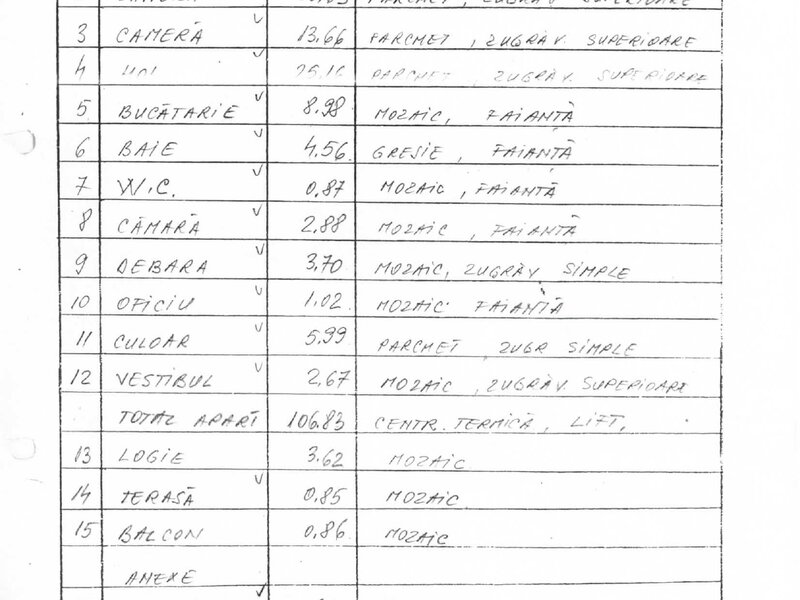 PARCHET, ZUGRAV SUPERIOARE
3 CAMERĂ 13.66 PARCHET, ZUGRĂV. SUPERIOARE
4 HOL 25.16 PARCHET, ZUGRĂV SUPERIOARE
5 BUCĂTARIE 8.98 MOZAIC, FAIANTĂ
6 BAIE 4.56 GRESIE, FAIANTĂ
7 W.C. 0.87 MOZAIC, FAIANTĂ
8 CĂMARĂ 2.88 MOZAIC, FAIANTĂ
9 DEBARA 3.70 MOZAIC, ZUGRĂV. SIMPLE
10 OFICIU 1.02 MOZAIC FAIANTĂ
11 CULOAR 5.99 PARCHET, ZUGR SIMPLE
12 VESTIBUL 2.67 MOZAIC, ZUGRĂV. SUPERIOARE
TOTAL APART 106.83 CENTR. TERMICĂ, LIFT,
13 LOGIE 3.62 MOZAIC
14 TERASĂ 0.85 MOZAIC
15 BALCON 0.86 MOZAIC
ANEXE